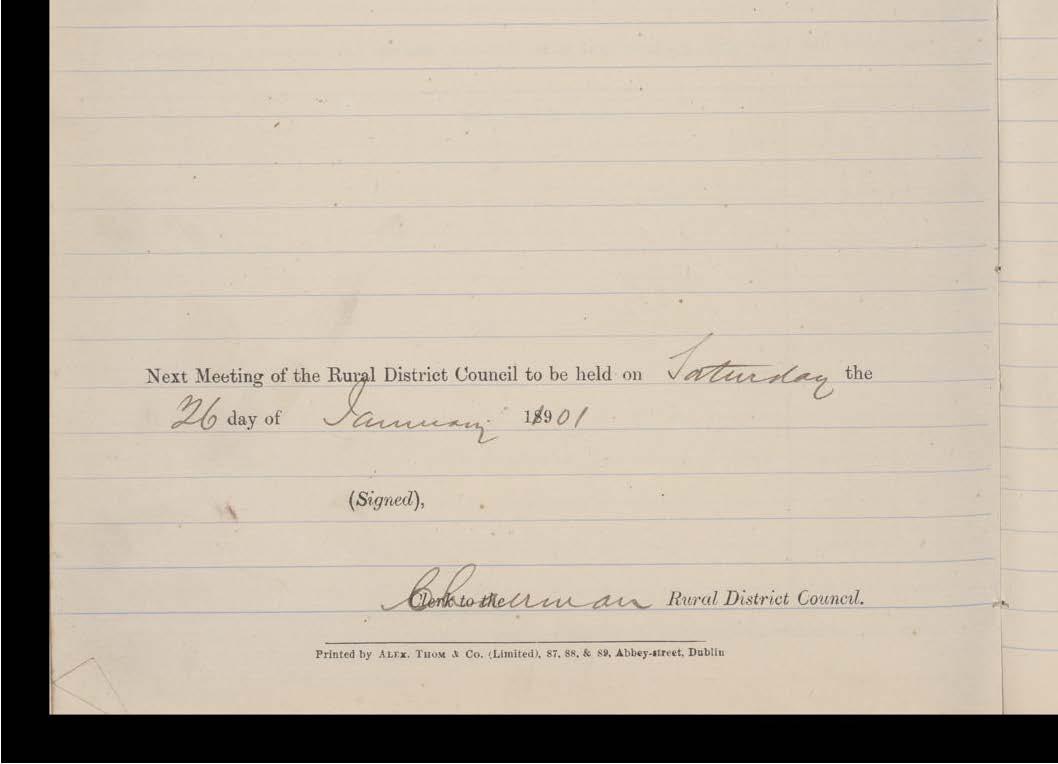 Next Meeting of the Rural District Council to be held on Saturday the
26 day of January 1901
(Signed),
Chairman Rural District Council.
Printed by ALEX. THOM & Co. (Limited), 87, 88, & 89, Abbey-street, Dublin